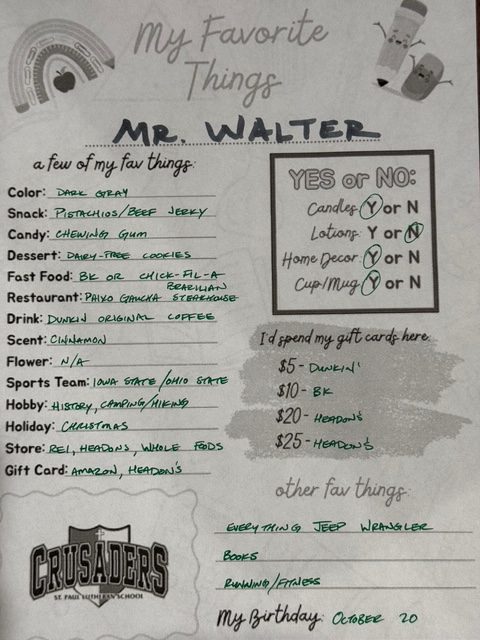 My Favorite
Things
MR. WALTER
a few of my fav things:
Color: DARK GRAY
Snack: PISTACHIOS/BEEF JERKY
Candy: CHEWING GUM
Dessert: DAIRY-FREE COOKIES
Fast Food: BK OR CHICK-FIL-A
BRAZILIAN
Restaurant: PAIXO GAUCHA STEAKHOUSE
Drink: DUNKIN ORIGINAL COFFEE
Scent: CINNAMON
Flower: N/A
Sports Team: IOWA STATE/OHIO STATE
Hobby: HISTORY, CAMPING/HIKING
Holiday: CHRISTMAS
Store: REI, HEADONS, WHOLE FODS
Gift Card: AMAZON, HEADON'S
YES or NO:
Candles Y or N
Lotions: Y or N
Home Decor Y or N
Cup/Mug Y or N
I'd spend my gift cards here:
$5- DUNKIN'
$10- BK
$20- HEADON'S
$25- HEADON'S
other fav things:
EVERYTHING JEEP WRANGLER
BOOKS
RUNNING/FITNESS
My Birthday: OCTOBER 20
CRUSADERS
ST. PAUL LUTHERAN SCHOOL